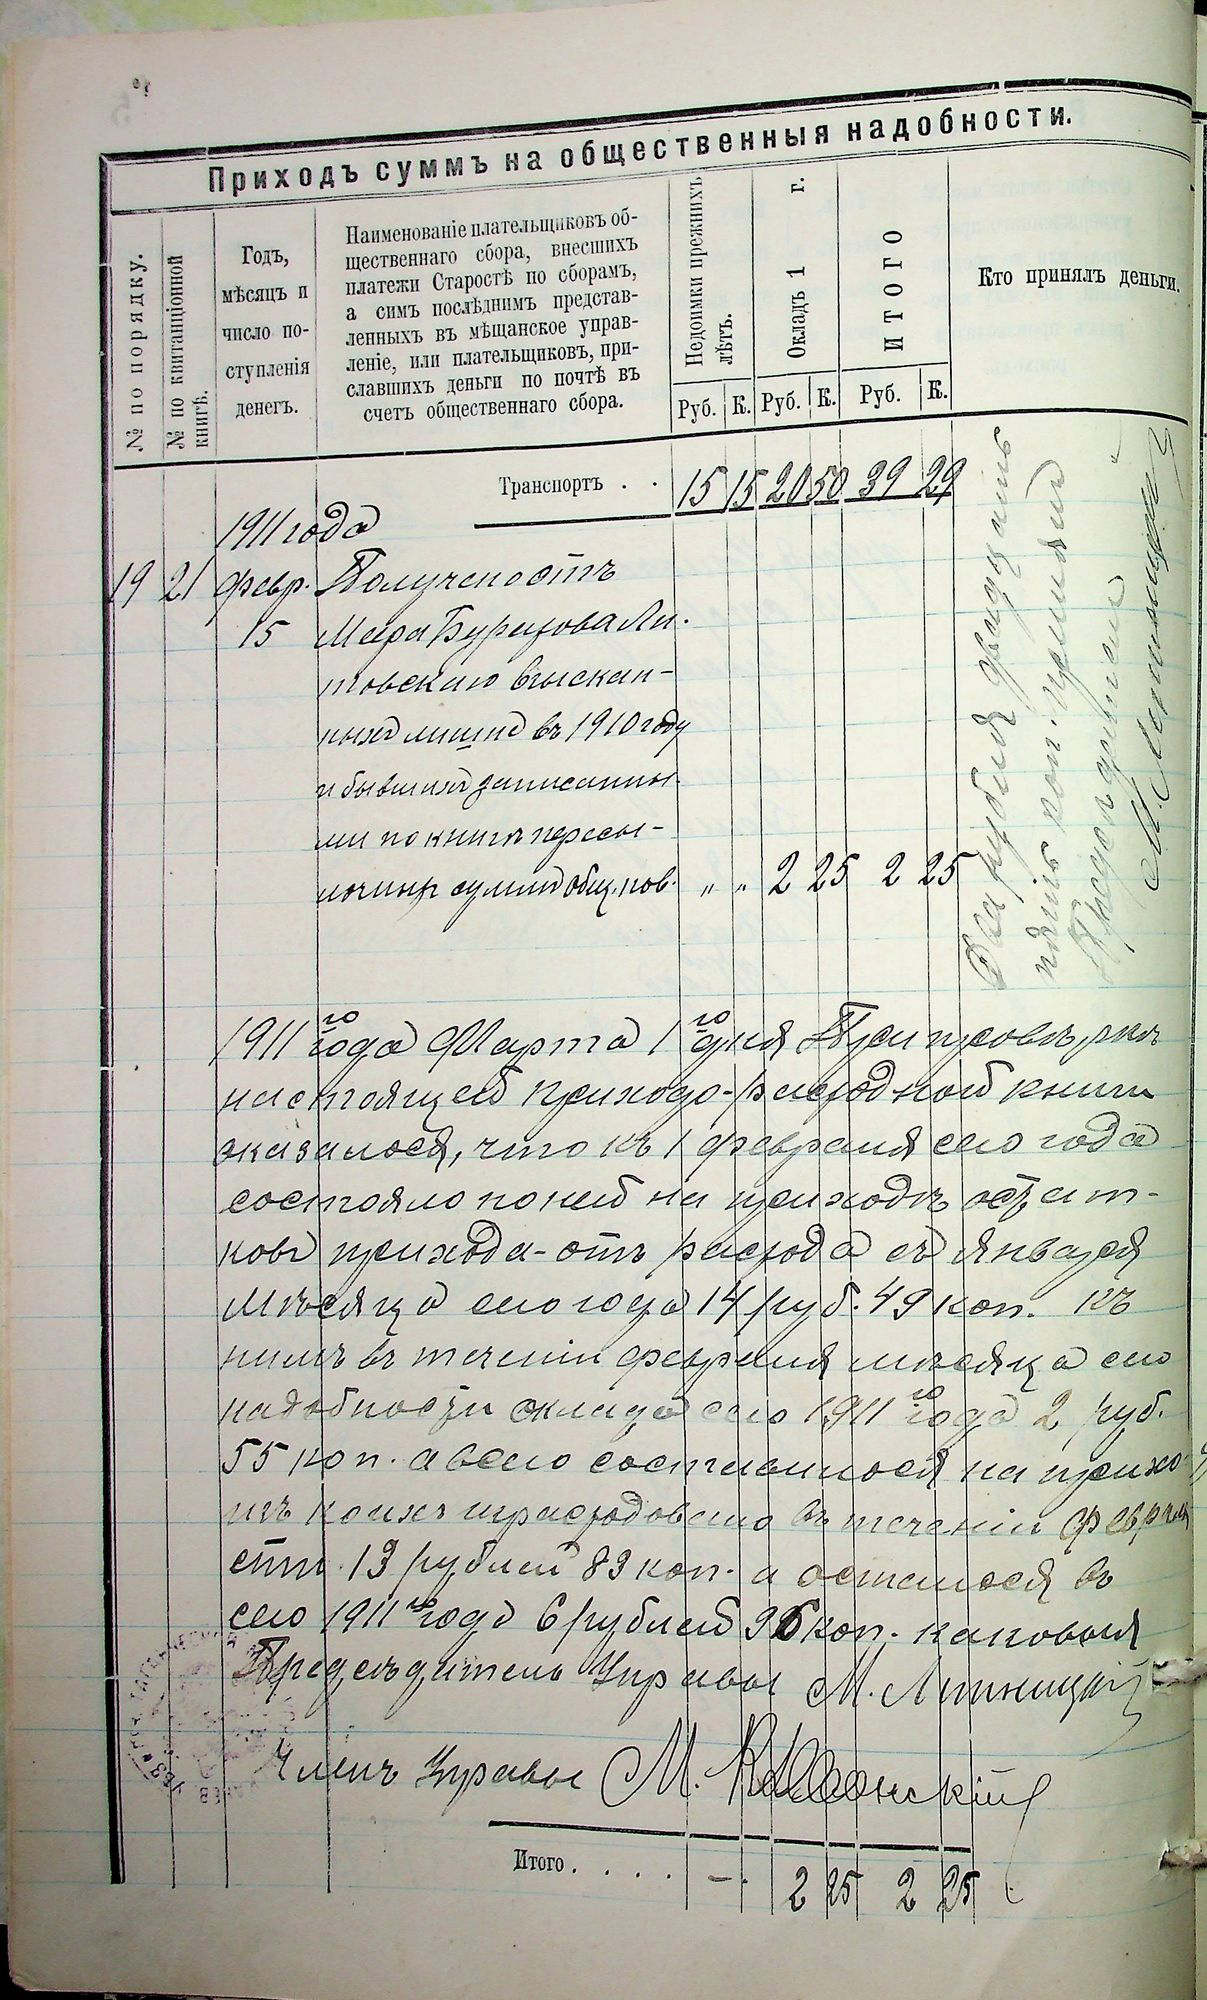 Приходъ суммъ на общественныя надобности.
№ по порядку.
№ по квитанціонной книгѣ.
Годъ,
мѣсяцъ и
число по-
ступленія
денегъ.
Наименованіе плательщиковъ об-
щественнаго сбора, внесшихъ
платежи Старостѣ по сборамъ,
а симъ послѣднимъ представ-
ленныхъ въ мѣщанское управ-
леніе, или плательщиковъ, при-
славшихъ деньги по почтѣ въ
счетъ общественнаго сбора.
Недоимки прежнихъ лѣтъ.
Окладъ 1 г.
ИТОГО
Кто принялъ деньги.
Руб. К. Руб. К. Руб. К.
Транспортъ . . 15 15 20 50 39 29
1911 года
19 21 февр. Получено отъ
15 Мера
товскаго взыскан-
ныхъ въ 1910 году
и бывшихъ записанны-
ми по книгѣ пересы-
сумм общ. пов. „ „ 2 25 2 25
Два рубля двадцать
пять коп. принялъ
Предсѣдатель
М. Летницкій
1911го года Марта 1го дня При провѣркѣ
настоящей приходо-расходной книги
оказалось, что къ 1 февраля сего года
состояло по ней на приходѣ остат-
ковъ прихода от расхода съ января
мѣсяца сего года 14 руб. 49 коп. къ
нимъ въ теченіи февраля мѣсяца сего
надобности оклада сего 1911го года 2 руб.
55 коп. а всего составилось на прихо-
изъ коихъ израсходовано въ теченіи февраля
13 рублей 83 коп. а осталося въ
сего 1911го года 6 рублей 96 коп. каковыя
Предсѣдатель Управы М. Летницкій
Членъ Управы М.
Итого . . . . — . 2 25 2 25